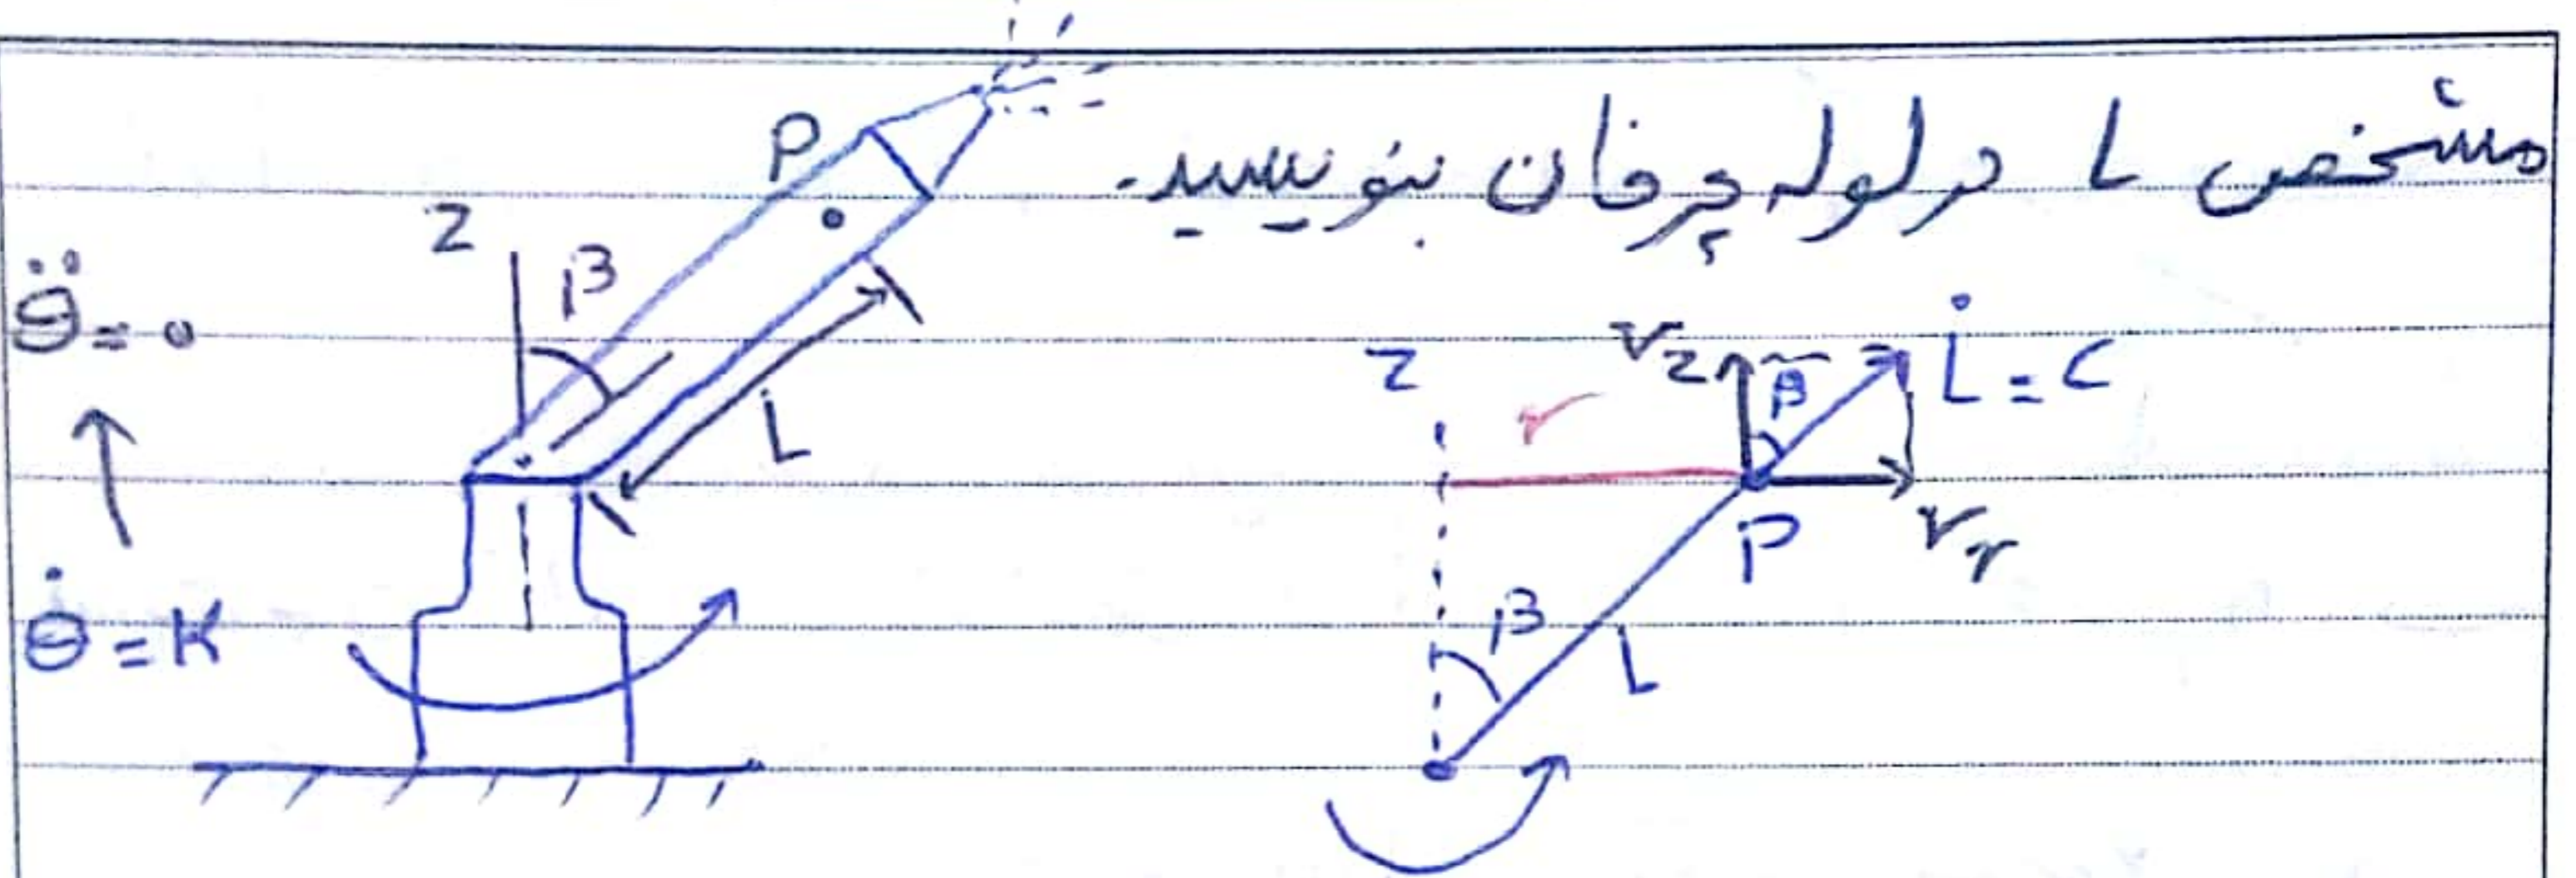 مشخص L در لوله چرخان بنویسید.
P
Z
β
θ̈ = 0
L
θ̇ = K
Z
r
V_z
β
L̇ = C
P
V_r
β
L